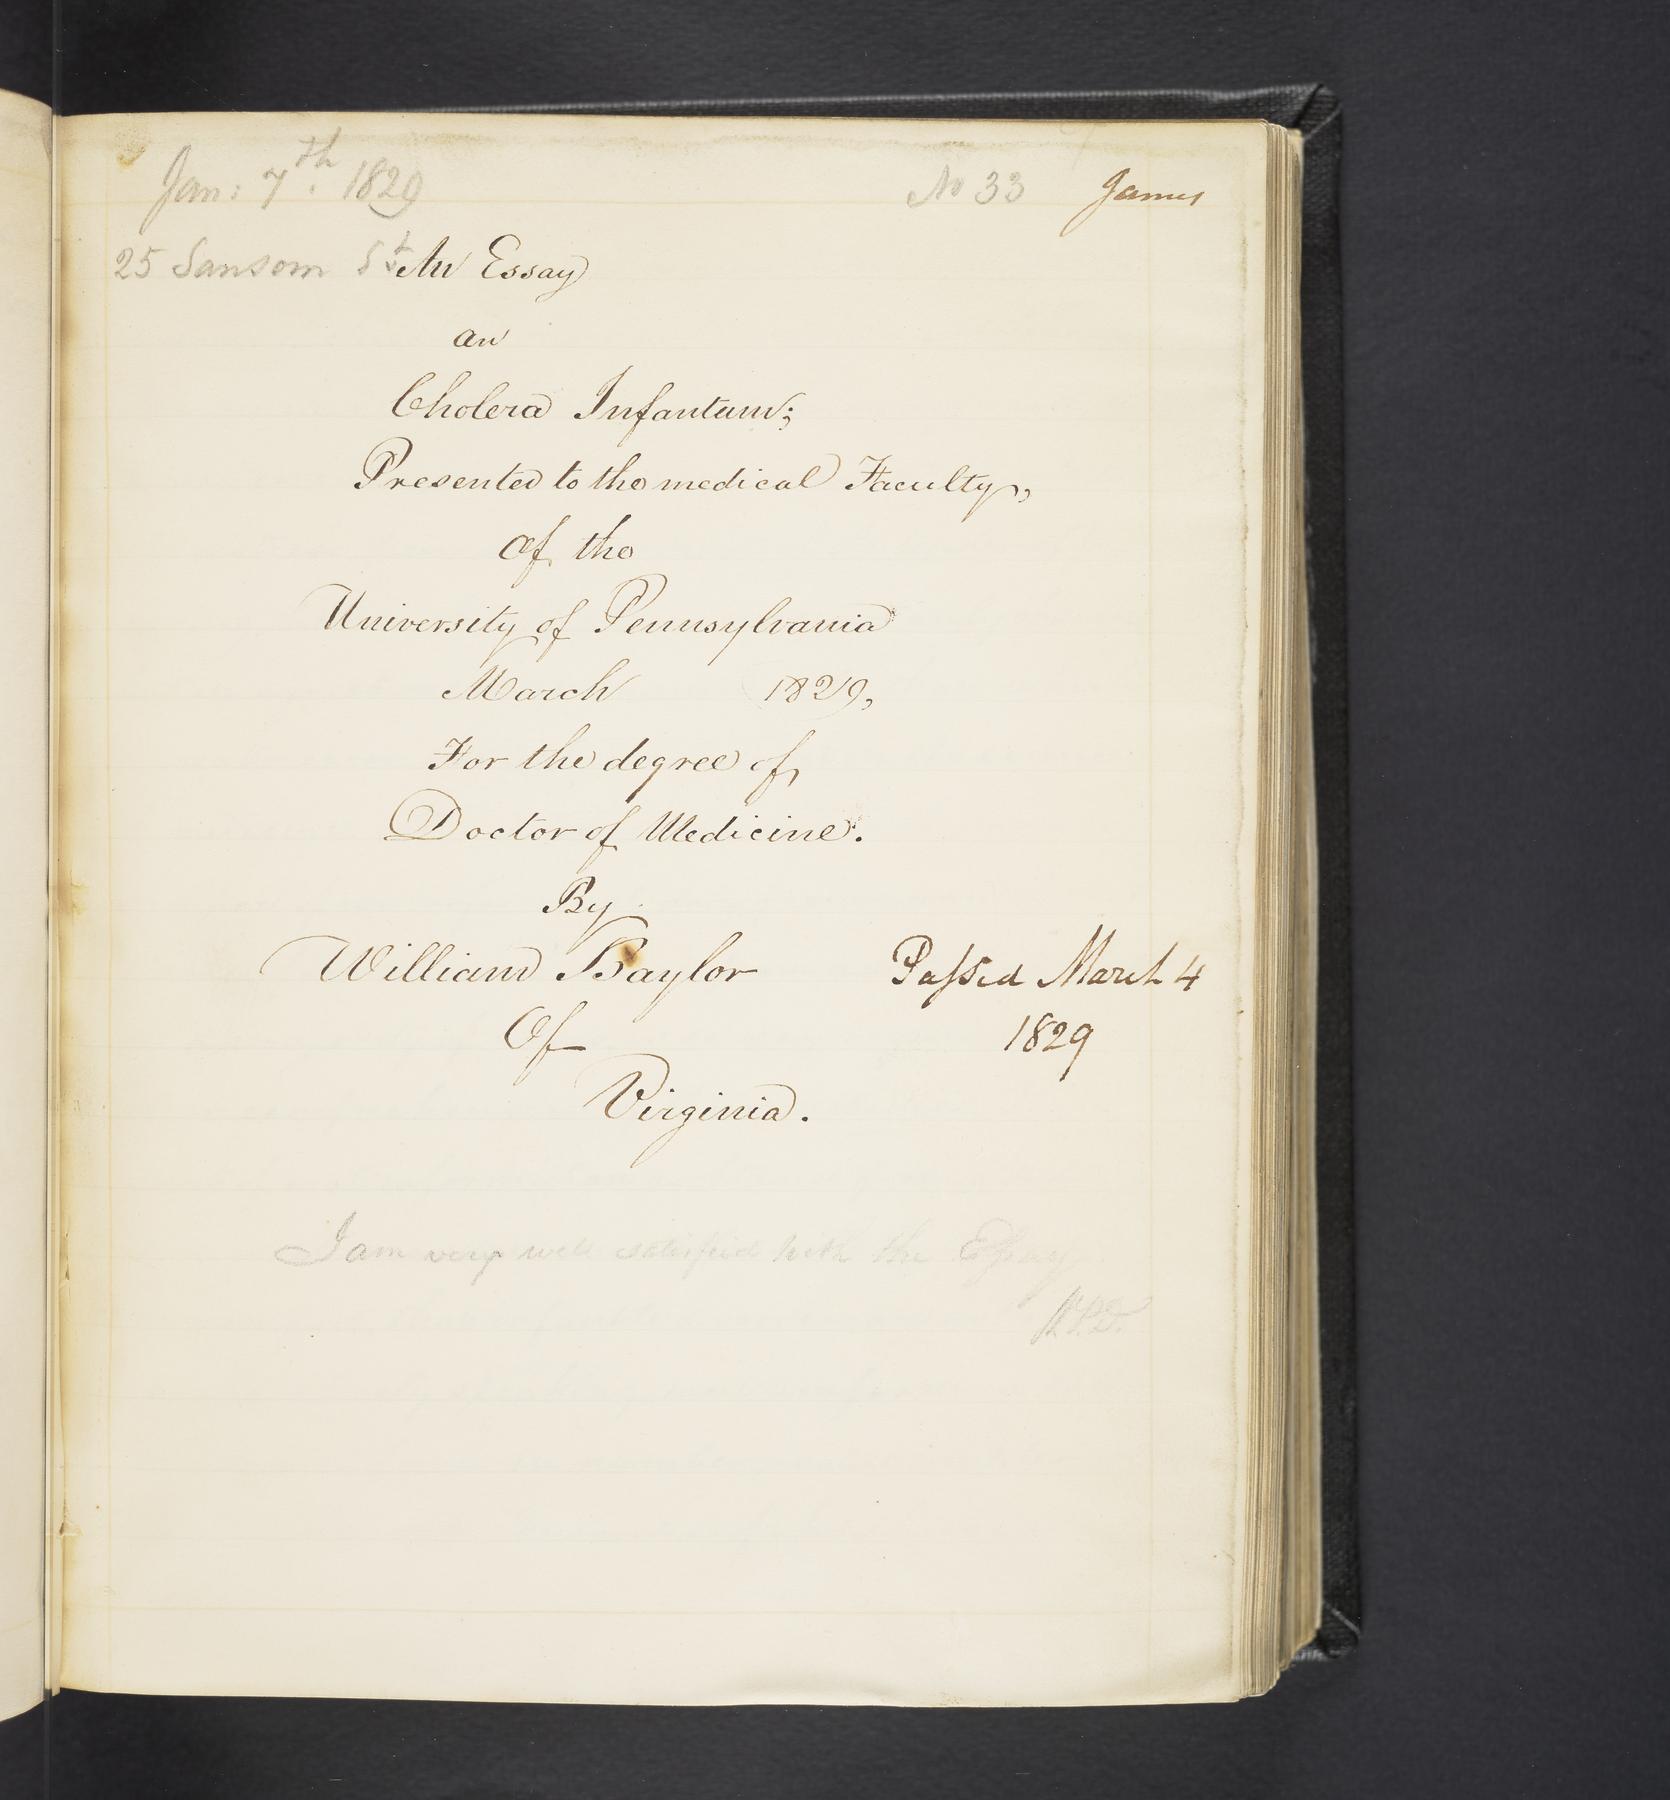 Jan: 7th. 1829 No 33 James
25 Sansom St An Essay
on
Cholera Infantum;
Presented to the medical Faculty,
Of the
University of Pennsylvania
March 1829,
For the degree of
Doctor of Medicine.
By
William Baylor Passed March 4
Of 1829
Virginia.
I am very well satisfied with the Essay